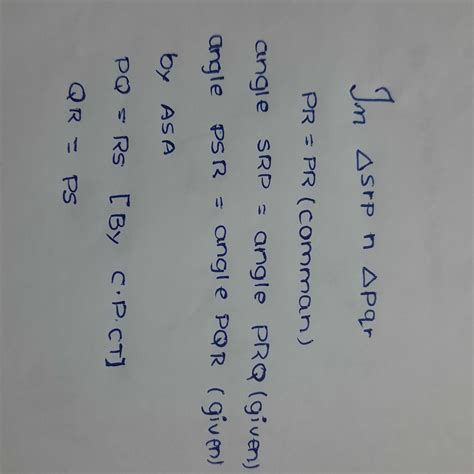 In △srp n △pqr
PR = PR (comman)
angle SRP = angle PRQ (given)
angle PSR = angle PQR (given)
by ASA
PQ = RS [By C.P.CT]
QR = PS